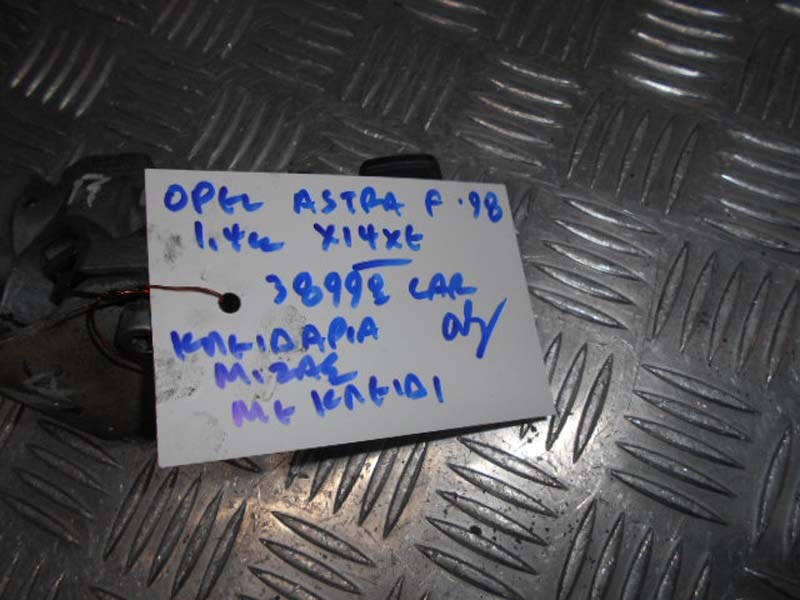 OPEL ASTRA F '98
1.4cc X14XE
38992 CAR
ΚΛΕΙΔΑΡΙΑ
ΜΙΖΑΣ
ΜΕ ΚΛΕΙΔΙ